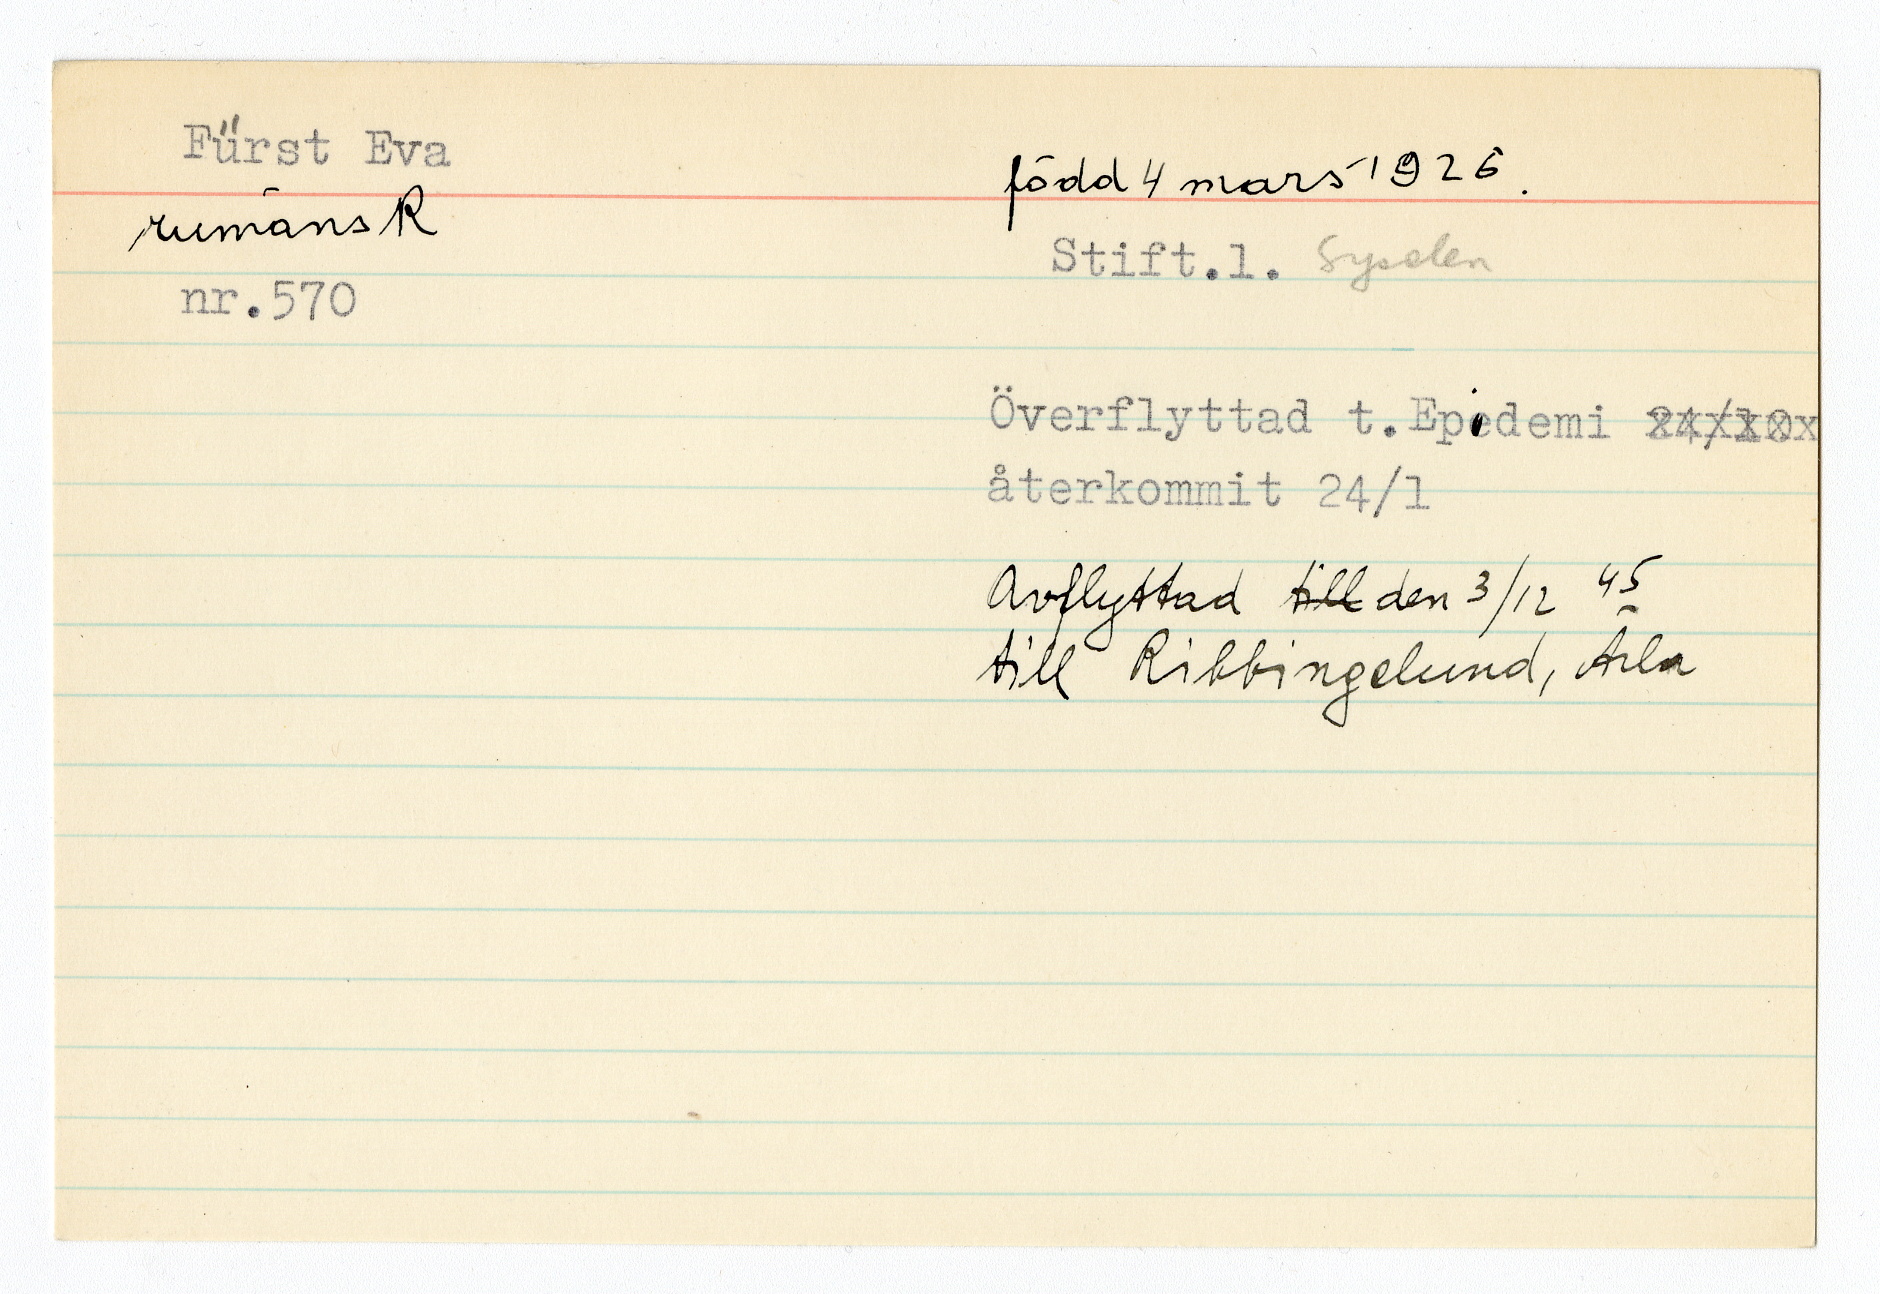 Fürst Eva
rumänsk
nr.570
född 4 mars 1926.
Stift.l.
Överflyttad t.Epidemi
återkommit 24/1
Avflyttad till den 3/12 45
till Ribbingelund, Ärla